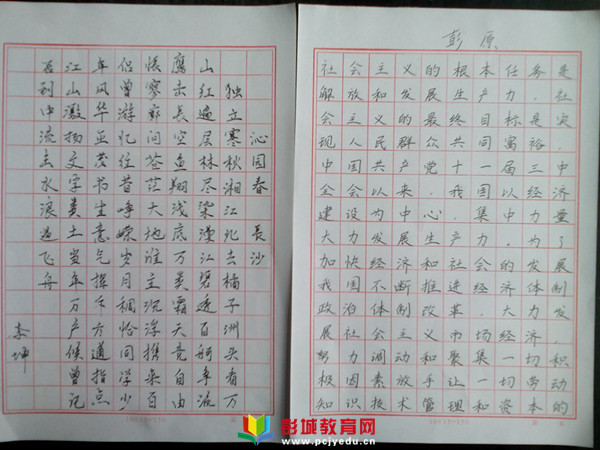 沁园春 长沙
独立寒秋湘江北去橘子洲头看万
山红遍层林尽染漫江碧透百舸争流
鹰击长空鱼翔浅底万类霜天竞自由
怅寥廓问苍茫大地谁主沉浮携来百
侣曾游忆往昔峥嵘岁月稠恰同学少
年风华正茂书生意气挥斥方遒指点
江山激扬文字粪土当年万户候曾记
否到中流击水浪遏飞舟
李坤
彭原
社会主义的根本任务是
解放和发展生产力，社
会主义的最终目标是实
现人民群众共同富裕，
中国共产党十一届三中
全会以来，我国以经济
建设为中心，集中力量
大力发展生产力，为了
加快经济和社会的发展
我国不断推进经济体制
政治体制改革，大力发
展社会主义市场经济，
努力调动和聚集一切积
极因素放手让一切劳动
知识技术管理和资本的
彭城教育网
www.pcjyedu.cn